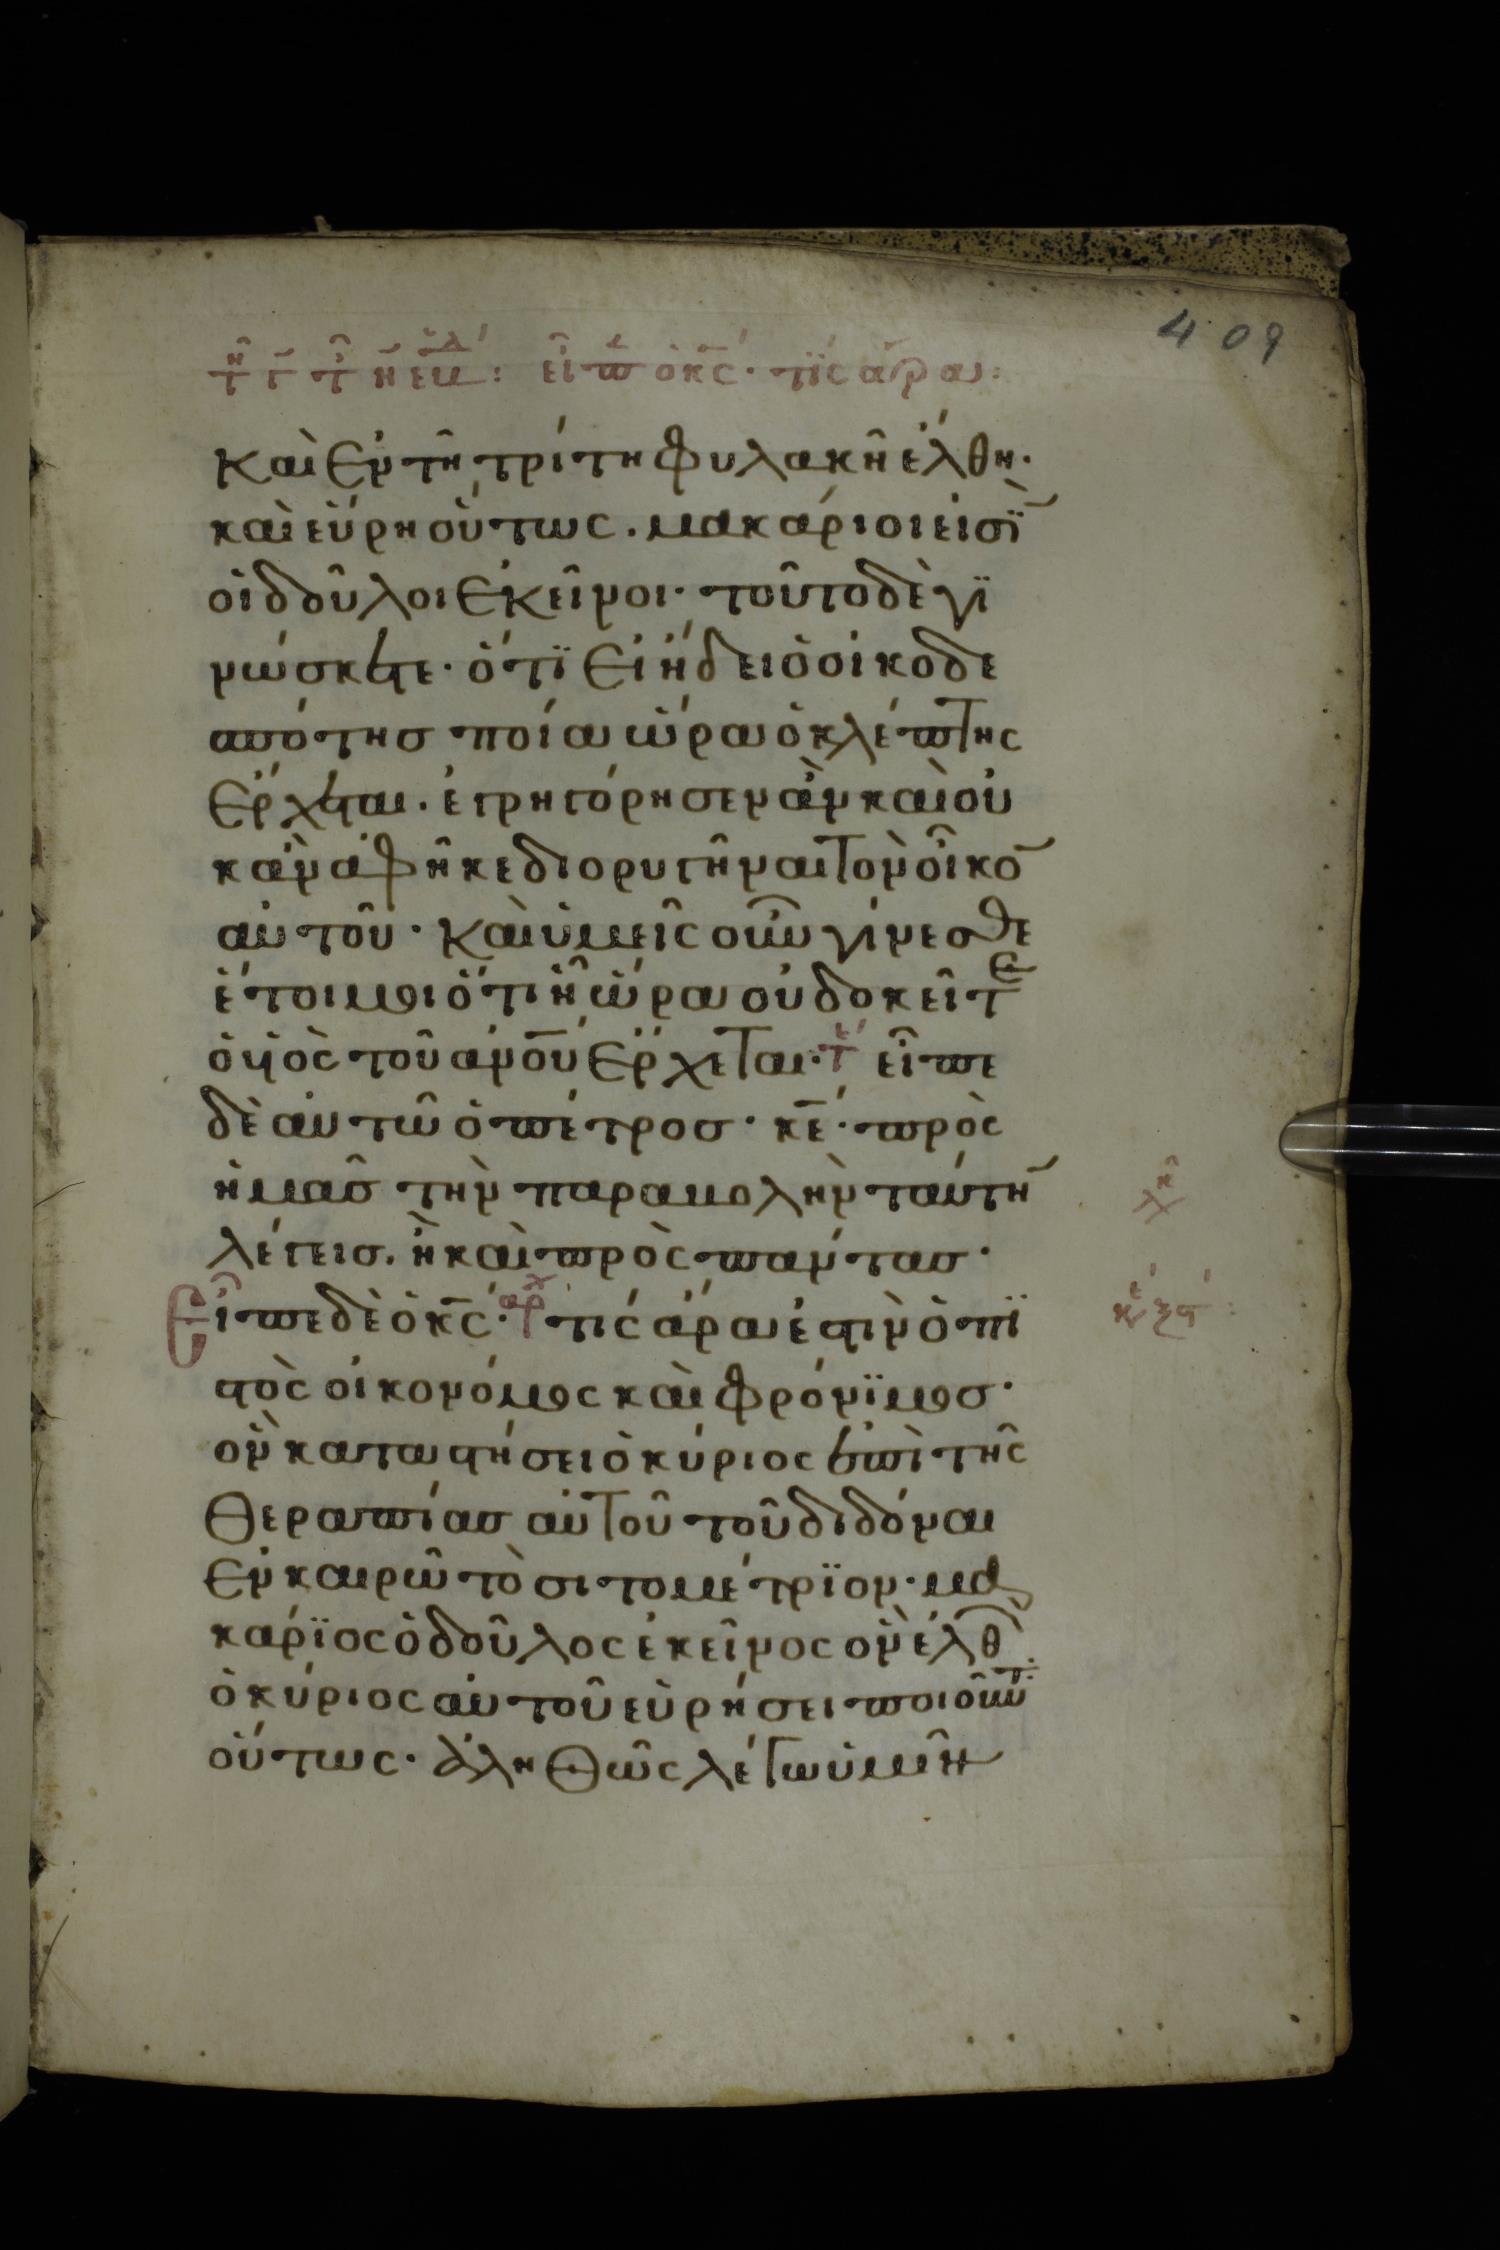 409
εἶπ ὁ κς· τίς ἄρα:
Καὶ ἐν τῆ τρίτη φυλακῆ ἔλθη·
καὶ εὕρη οὕτως. μακάριοι εἰσϊ
οἱ δοῦλοι ἐκεῖνοι· τοῦτο δὲ γϊ
νώσκετε· ὅτϊ εἰ ἤδει ὁ οἰκοδε
σπότησ ποία ὥρα ὁ κλέπτης
ἔρχεται. ἐγρηγόρησεν ἂν καὶ οὐ
κ ἂν ἀφῆκε διορυγῆναι τὸν οἶκο
αὐτοῦ· Καὶ ὑμεῖς οὖν γίνεσθε
ἕτοιμοι ὅτι ἧ ὥρα οὐ δοκεῖτε
ὁ υἱὸς τοῦ ανου ἔρχεται· τ εἶπε
δὲ αὐτῶ ὁ πέτροσ· κε· πρὸς
ἡμᾶσ τὴν παραβολὴν ταύτη
λέγεισ. ἢ καὶ πρὸς πάντασ·
Εἶπε δὲ ὁ κς· αρχ τίς ἄρα ἐστὶν ὁ πϊ
στὸς οἰκονόμος καὶ φρόνϊμοσ·
ὃν καταστήσει ὁ κύριος ἐπὶ τῆς
θεραπίασ αὐτοῦ τοῦ διδόναι
ἐν καιρῶ τὸ σιτομέτρϊον· μα
κάρϊος ὁ δοῦλος ἐκεῖνος ὃν ἐλθ
ὁ κύριος αὐτοῦ εὑρήσει ποιοῦντ
οὕτως· ἀληθῶς λέγω ὑμῖν